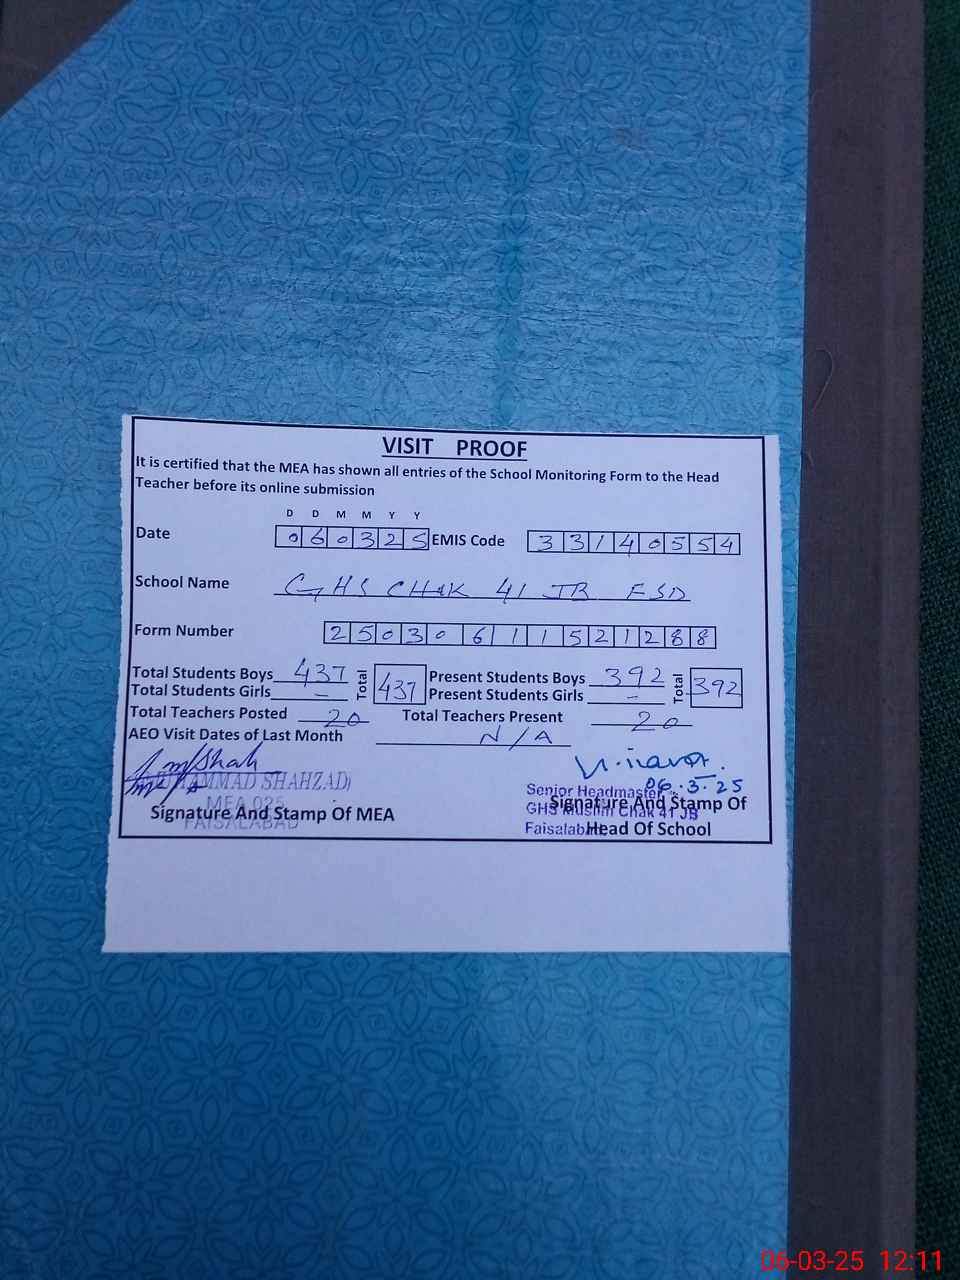 VISIT PROOF
It is certified that the MEA has shown all entries of the School Monitoring Form to the Head
Teacher before its online submission
D D M M Y Y
Date 060325 EMIS Code 33140554
School Name GHS CHAK 41 JB FSD
Form Number 25030611521288
Total Students Boys 437 Total 437 Present Students Boys 392 Total 392
Total Students Girls - Present Students Girls -
Total Teachers Posted 20 Total Teachers Present 20
AEO Visit Dates of Last Month N/A
MUHAMMAD SHAHZAD
MEA 025
FAISALABAD
Signature And Stamp Of MEA
06.3.25
Senior Headmaster
GHS Muslim Chak 41 JB
Faisalabad
Signature And Stamp Of
Head Of School
06-03-25 12:11